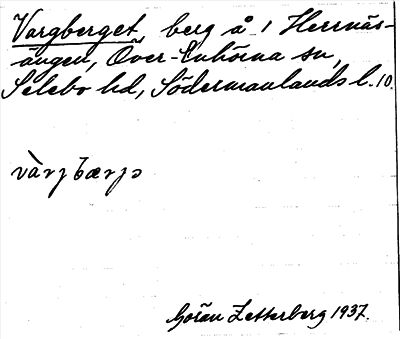 Vargberget, berg å 1 Herrnäs-
ängen, Över-Enhörna sn,
Selebo hd, Södermanlands l. 10.
vàrjbærjə
Göran Zetterberg 1937.